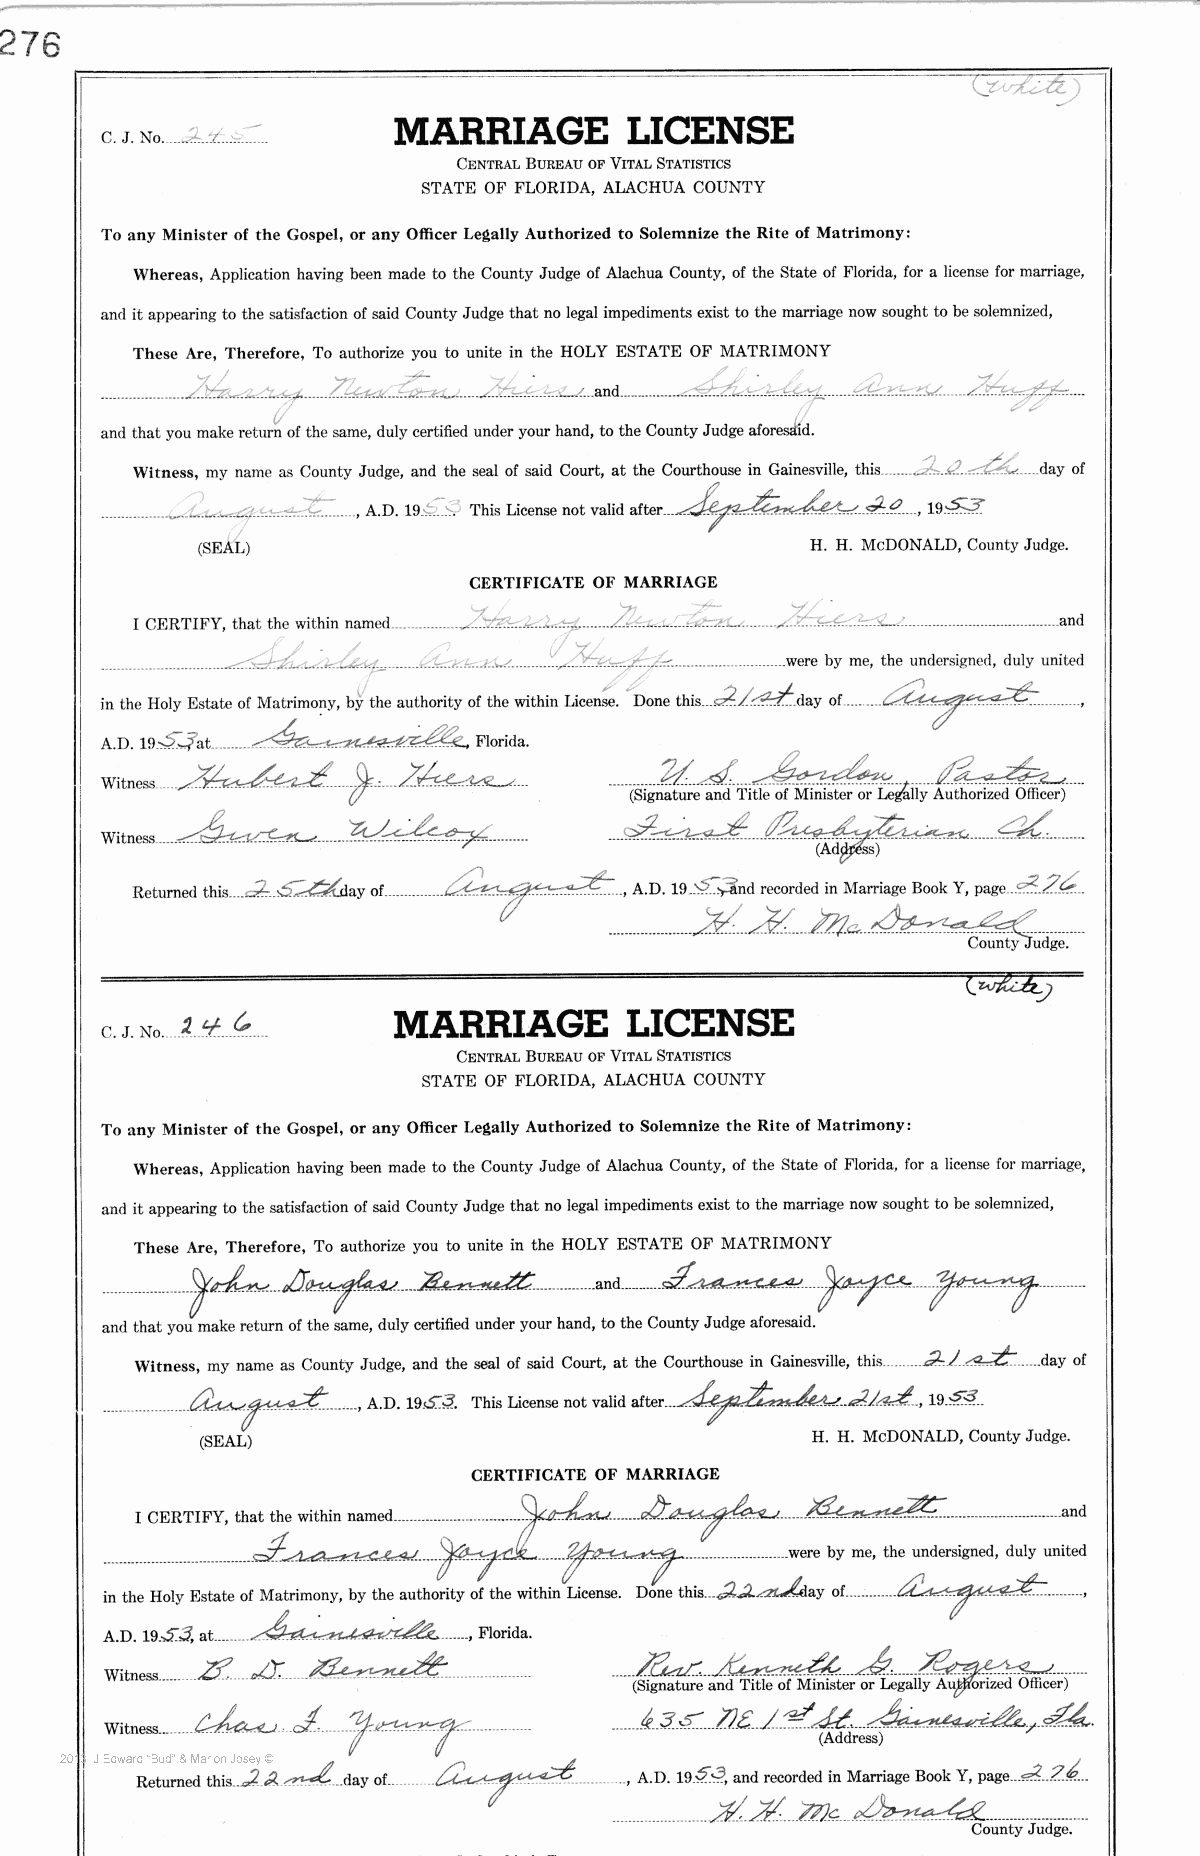 276
(White)
C. J. No. 245
MARRIAGE LICENSE
CENTRAL BUREAU OF VITAL STATISTICS
STATE OF FLORIDA, ALACHUA COUNTY
To any Minister of the Gospel, or any Officer Legally Authorized to Solemnize the Rite of Matrimony:
Whereas, Application having been made to the County Judge of Alachua County, of the State of Florida, for a license for marriage,
and it appearing to the satisfaction of said County Judge that no legal impediments exist to the marriage now sought to be solemnized,
These Are, Therefore, To authorize you to unite in the HOLY ESTATE OF MATRIMONY
Harry Newton Hiers and Shirley Ann Huff
and that you make return of the same, duly certified under your hand, to the County Judge aforesaid.
Witness, my name as County Judge, and the seal of said Court, at the Courthouse in Gainesville, this 20th day of
August, A.D. 1953. This License not valid after September 20, 1953
(SEAL) H. H. McDONALD, County Judge.
CERTIFICATE OF MARRIAGE
I CERTIFY, that the within named Harry Newton Hiers and
Shirley Ann Huff were by me, the undersigned, duly united
in the Holy Estate of Matrimony, by the authority of the within License. Done this 21st day of August,
A.D. 1953, at Gainesville, Florida.
Witness Hubert J. Hiers U. S. Gordon, Pastor
(Signature and Title of Minister or Legally Authorized Officer)
Witness Gwen Wilcox First Presbyterian Ch.
(Address)
Returned this 25th day of August, A.D. 1953, and recorded in Marriage Book Y, page 276
H. H. McDonald
County Judge.
(White)
C. J. No. 246
MARRIAGE LICENSE
CENTRAL BUREAU OF VITAL STATISTICS
STATE OF FLORIDA, ALACHUA COUNTY
To any Minister of the Gospel, or any Officer Legally Authorized to Solemnize the Rite of Matrimony:
Whereas, Application having been made to the County Judge of Alachua County, of the State of Florida, for a license for marriage,
and it appearing to the satisfaction of said County Judge that no legal impediments exist to the marriage now sought to be solemnized,
These Are, Therefore, To authorize you to unite in the HOLY ESTATE OF MATRIMONY
John Douglas Bennett and Frances Joyce Young
and that you make return of the same, duly certified under your hand, to the County Judge aforesaid.
Witness, my name as County Judge, and the seal of said Court, at the Courthouse in Gainesville, this 21st day of
August, A.D. 1953. This License not valid after September 21st, 1953
(SEAL) H. H. McDONALD, County Judge.
CERTIFICATE OF MARRIAGE
I CERTIFY, that the within named John Douglas Bennett and
Frances Joyce Young were by me, the undersigned, duly united
in the Holy Estate of Matrimony, by the authority of the within License. Done this 22nd day of August,
A.D. 1953, at Gainesville, Florida.
Witness B. D. Bennett Rev. Kenneth G. Rogers
(Signature and Title of Minister or Legally Authorized Officer)
Witness Chas F. Young 635 NE 1st St. Gainesville, Fla.
(Address)
J Edward "Bud" & Marion Josey ©
Returned this 22nd day of August, A.D. 1953, and recorded in Marriage Book Y, page 276
H. H. McDonald
County Judge.